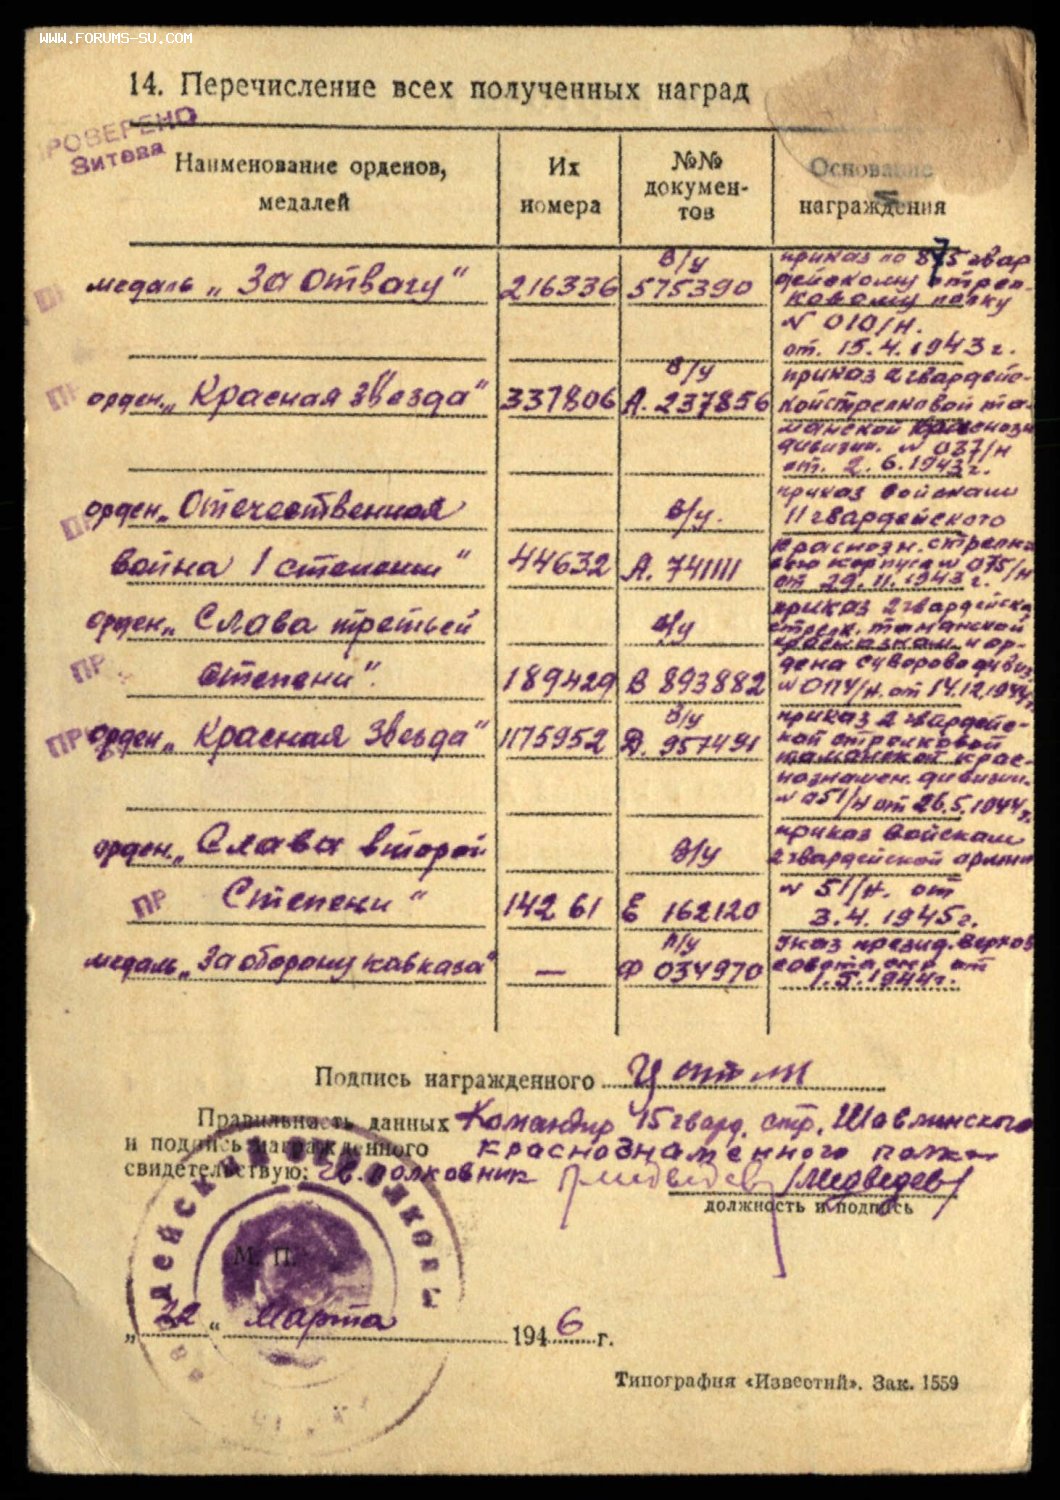 WWW.FORUMS-SU.COM
14. Перечисление всех полученных наград
ПРОВЕРЕНО
Зитева
Наименование орденов, медалей
Их номера
№№ докумен-тов
Основание награждения
медаль „За отвагу" 216336 в/у 575390
приказ по 875 гвар
дейскому стрел-
ковому полку
N 010/н.
от. 15.4.1943г.
орден „Красная звезда" 337806 в/у А. 237856
приказ 2 гвардейс-
кой стрелковой та-
манской краснозн
дивизии. N 037/н
от. 2.6.1943г.
орден „Отечественная
война 1 степени" 44632 в/у. А. 741111
приказ войскам
11 гвардейского
краснозн. стрелко
вого корпуса N 075/н
от 29.11.1943г.
орден „Слава третьей
степени". 189429 в/у В 893882
приказ 2 гвардейск
стрелк. таманской
краснознам. и ор-
дена суворова дивиз
от 14.12.1944г.
орден „Красная звезда" 1175952 в/у Д. 957491
приказ 2 гвардейс-
кой стрелковой
таманской крас-
нознамен. дивизии.
N 051/н от 26.5.1944г.
орден „Слава второй
степени" 14261 в/у Е 162120
приказ войскам
2 гвардейской армии
N 51/н. от
3.4.1945г.
медаль „За оборону кавказа" — в/у Ф 034970
указ презид. верхов
совета ссср от
1.5.1944г.
ПР
ПР
ПР
ПР
ПР
ПР
Подпись награжденного
Правильность данных Командир 15 гвард. стр. Шавлинского
и подпись награжденного краснознаменного полка
свидетельствую: гв. полковник Медведев /Медведев/
должность и подпись
М. П.
„22" Марта 1946 г.
Типография «Известий». Зак. 1559